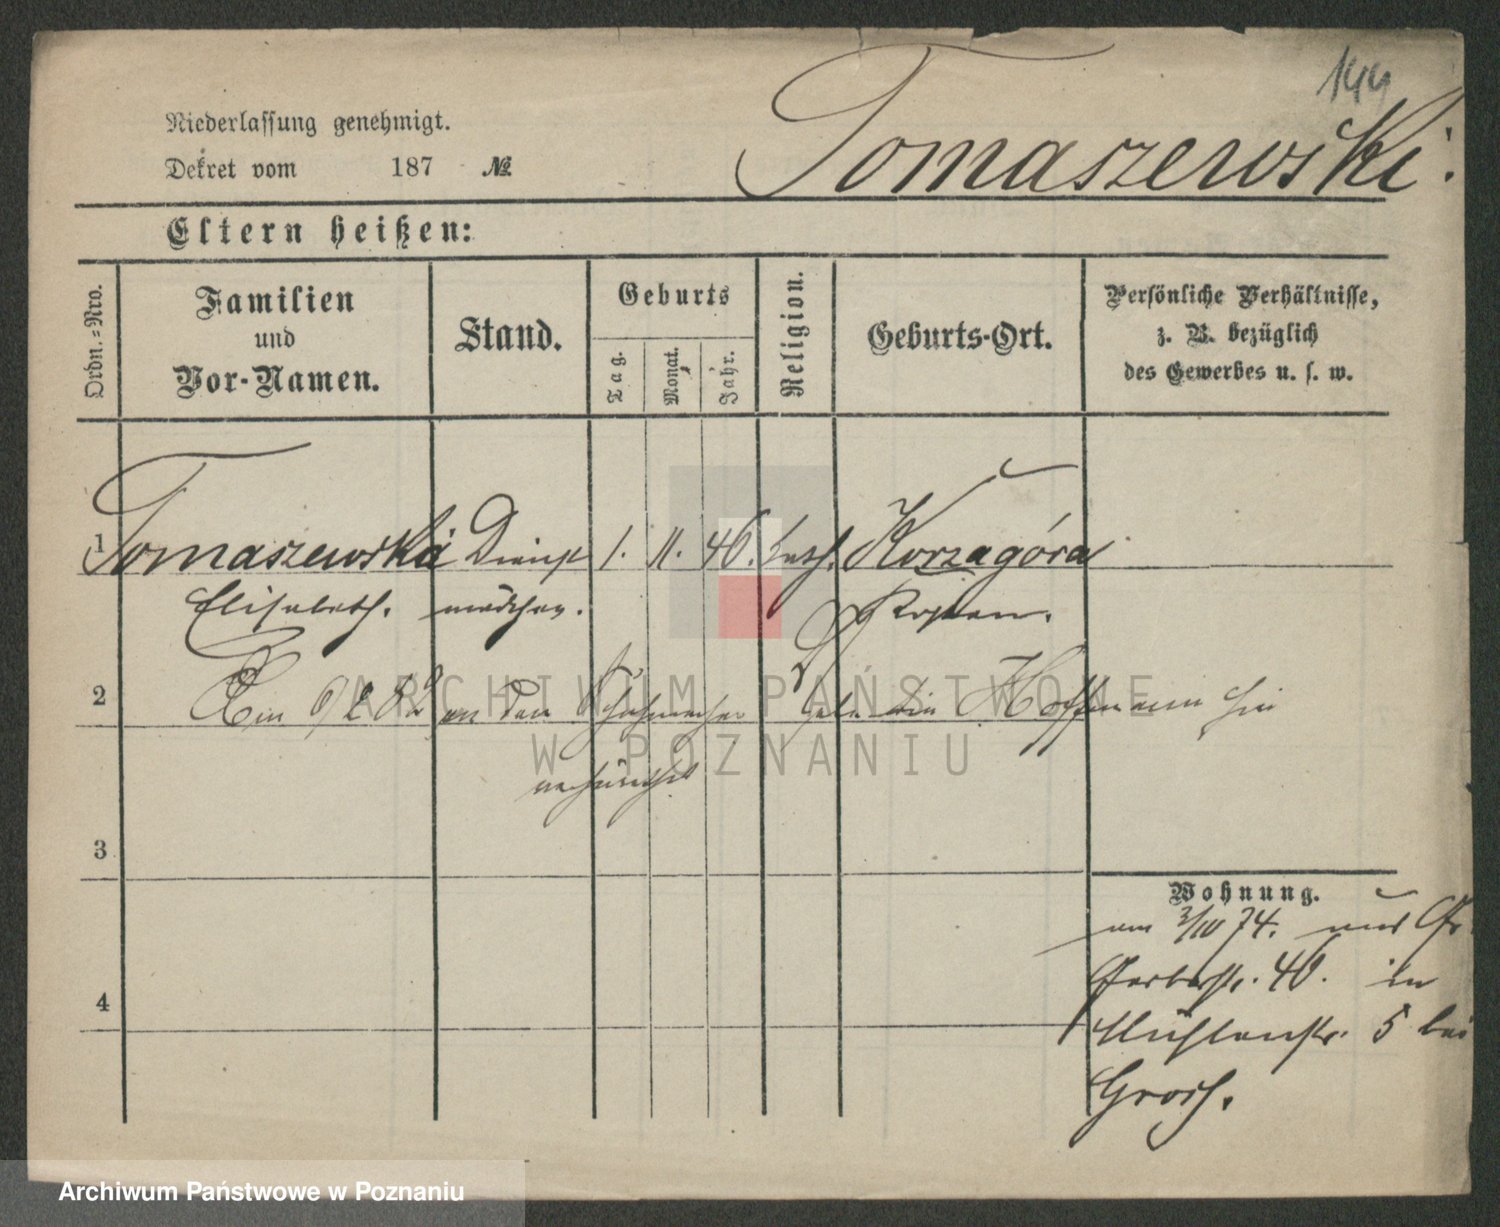 144
Tomaszewski.
Niederlassung genehmigt.
Dekret vom 187 №
Eltern heißen:
Ordn.=Nro.
Familien
und
Vor-Namen.
Stand.
Geburts
Tag.
Monat.
Jahr.
Religion.
Geburts-Ort.
Persönliche Verhältnisse,
z. B. bezüglich
des Gewerbes u. s. w.
1 Tomaszewska Dienst 1. 11. 46. kath. Korzagóra
Elisabeth. mädchen. Kosten.
2 an den Schuhmacher Hoffmann hier
verheirathet
3
4
Wohnung.
am 3/IV 74. aus Gr.
Gerberstr. 40. in
Mühlenstr. 5 bei
Grosh.
ARCHIWUM PAŃSTWOWE
W POZNANIU
Archiwum Państwowe w Poznaniu